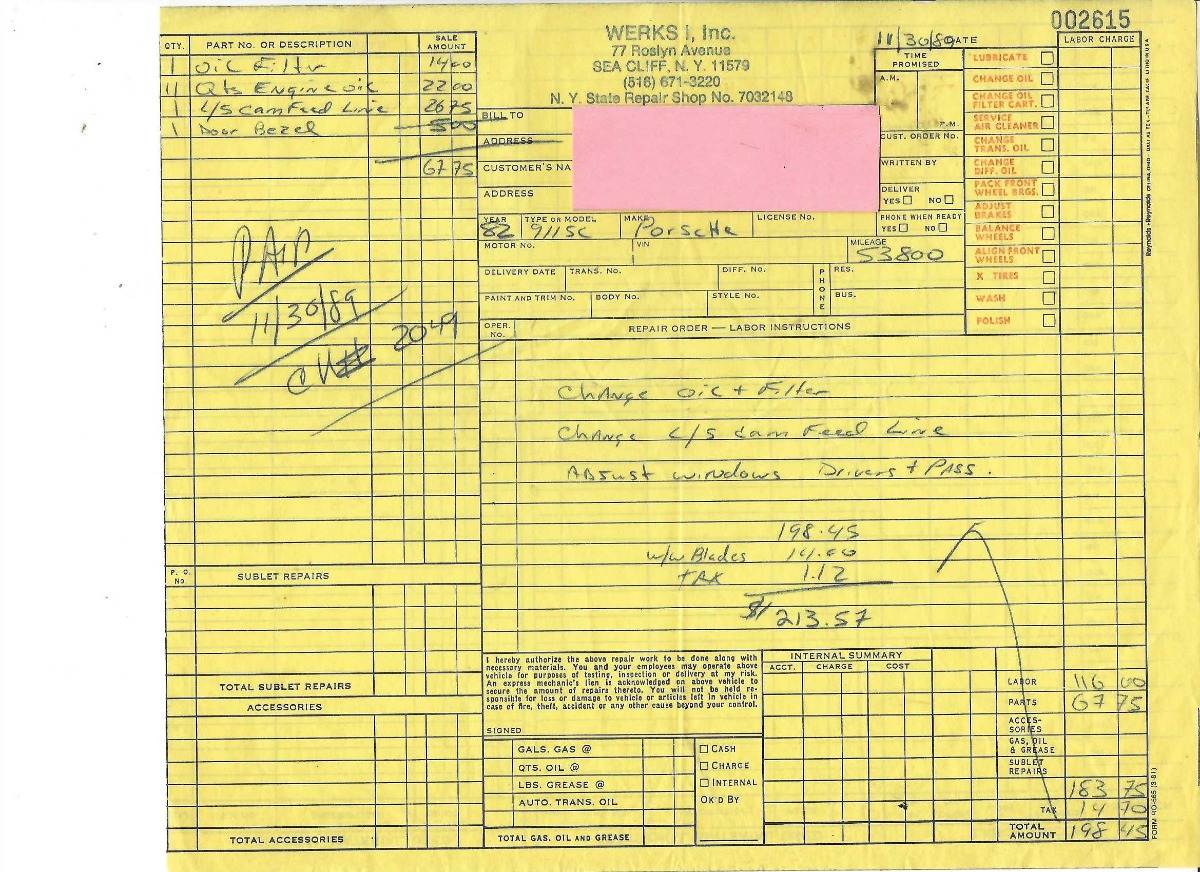 002615
WERKS I, Inc.
77 Roslyn Avenue
SEA CLIFF, N. Y. 11579
(516) 671-3220
N. Y. State Repair Shop No. 7032148
11/30/89 DATE
QTY. PART No. OR DESCRIPTION SALE AMOUNT
1 Oil Filter 14 00
11 Qts Engine oil 22 00
1 L/S Cam Feed Line 26 75
1 Door Bezel 5 00
67 75
PAID
11/30/89
CH# 2049
P. O. No. SUBLET REPAIRS
TOTAL SUBLET REPAIRS
ACCESSORIES
TOTAL ACCESSORIES
BILL TO
ADDRESS
CUSTOMER'S NA
ADDRESS
TIME PROMISED
A.M.
P.M.
CUST. ORDER No.
WRITTEN BY
DELIVER
YES NO
PHONE WHEN READY
YES NO
YEAR TYPE OR MODEL MAKE LICENSE No.
82 911SC Porsche
MOTOR No. VIN MILEAGE
53800
DELIVERY DATE TRANS. No. DIFF. No. PHONE RES.
PAINT AND TRIM No. BODY No. STYLE No. BUS.
LABOR CHARGE
LUBRICATE
CHANGE OIL
CHANGE OIL FILTER CART.
SERVICE AIR CLEANER
CHANGE TRANS. OIL
CHANGE DIFF. OIL
PACK FRONT WHEEL BRGS.
ADJUST BRAKES
BALANCE WHEELS
ALIGN FRONT WHEELS
X TIRES
WASH
POLISH
OPER. No. REPAIR ORDER — LABOR INSTRUCTIONS
Change oil + Filter
Change L/S Cam Feed Line
Adjust windows Drivers + Pass.
198.45
w/w Blades 14.00
tax 1.12
$ 213.57
I hereby authorize the above repair work to be done along with
necessary materials. You and your employees may operate above
vehicle for purposes of testing, inspection or delivery at my risk.
An express mechanic's lien is acknowledged on above vehicle to
secure the amount of repairs thereto. You will not be held re-
sponsible for loss or damage to vehicle or articles left in vehicle in
case of fire, theft, accident or any other cause beyond your control.
SIGNED
GALS. GAS @
QTS. OIL @
LBS. GREASE @
AUTO. TRANS. OIL
TOTAL GAS, OIL AND GREASE
CASH
CHARGE
INTERNAL
OK'D BY
INTERNAL SUMMARY
ACCT. CHARGE COST
LABOR 116 00
PARTS 67 75
ACCES- SORIES
GAS, OIL & GREASE
SUBLET REPAIRS
183 75
TAX 14 70
TOTAL AMOUNT 198 45
FORM RO-665 (3-81)